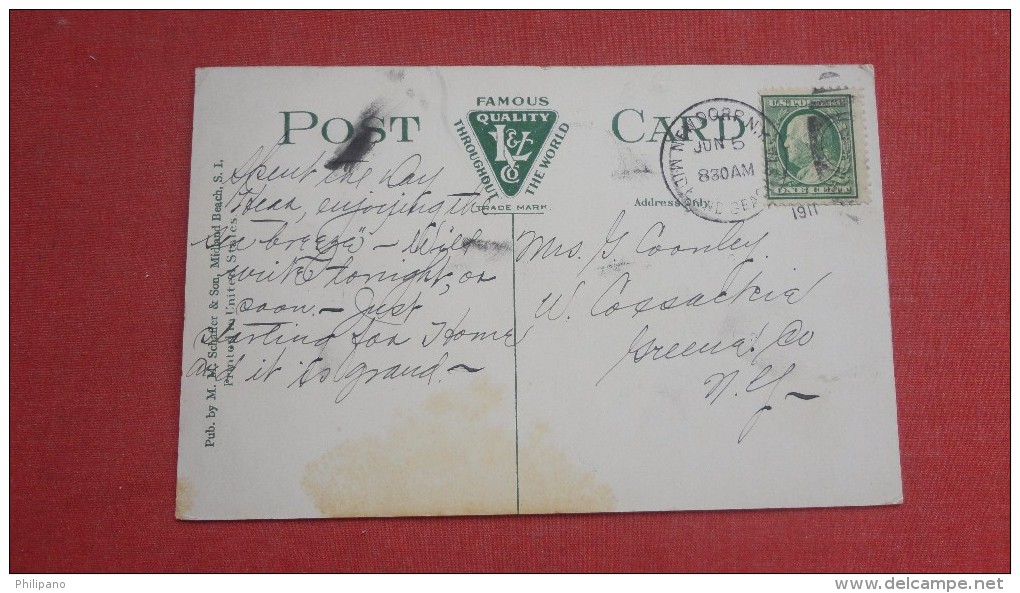 POST CARD
FAMOUS
QUALITY
THROUGHOUT THE WORLD
I&L
Co
TRADE MARK
Address Only
JUN 5
830AM
1911
U.S. POSTAGE
ONE CENT
Pub. by M. M. Schaffer & Son, Midland Beach, S. I.
Printed in United States
Spent the day
Here, enjoying the
"sea breeze" - Will
write tonight, or
soon. - Just
starting for Home
and it is grand. -
Mrs. G. Coonley
W. Coxsackie
Greene Co
N.Y. -
Philipano
www.delcampe.net